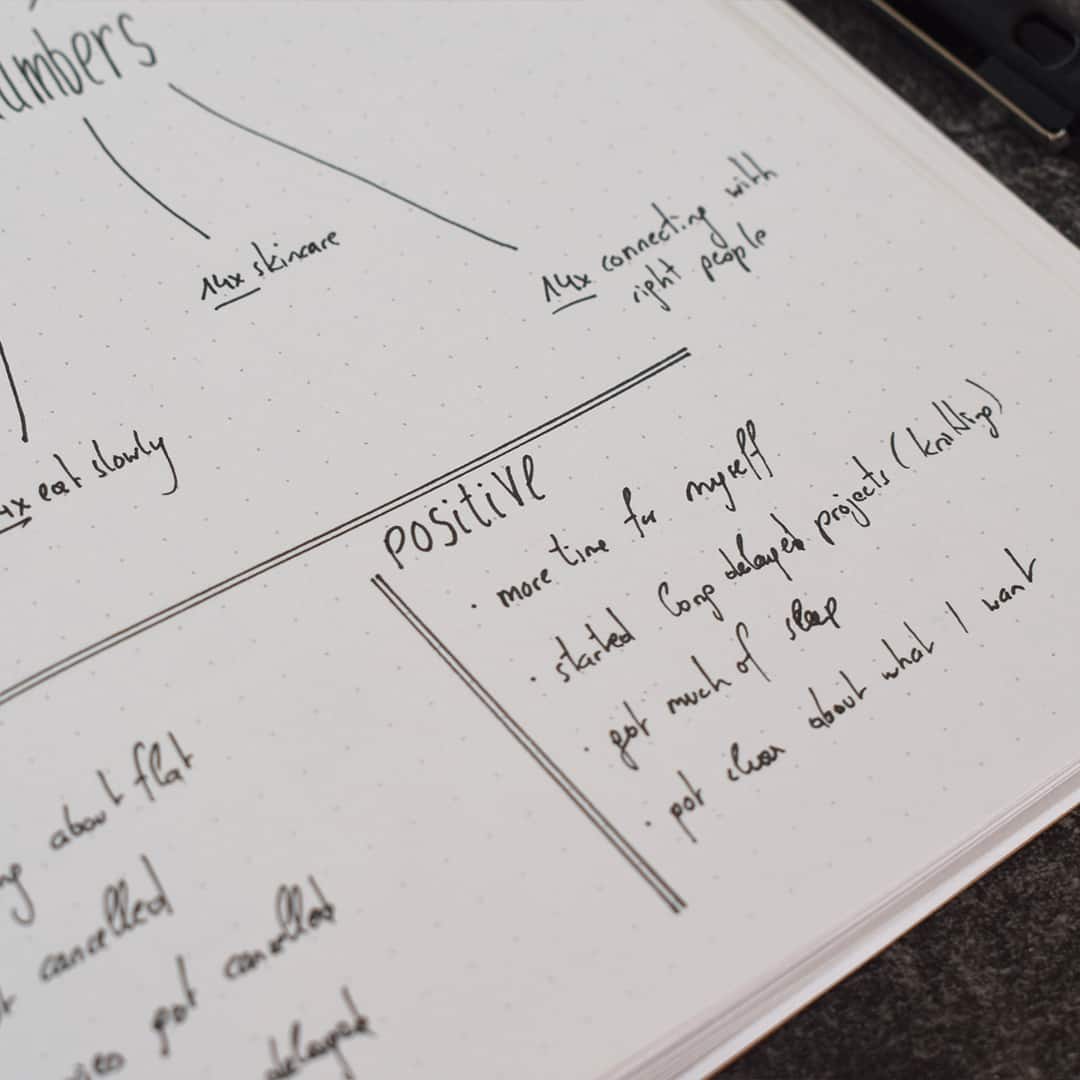 14x skincare
14x connecting with
right people
eat slowly
POSITIVE
· more time for myself
· started long delayed projects (knitting)
· got much of sleep
· got clear about what I want
about flat
cancelled
got cancelled
delayed